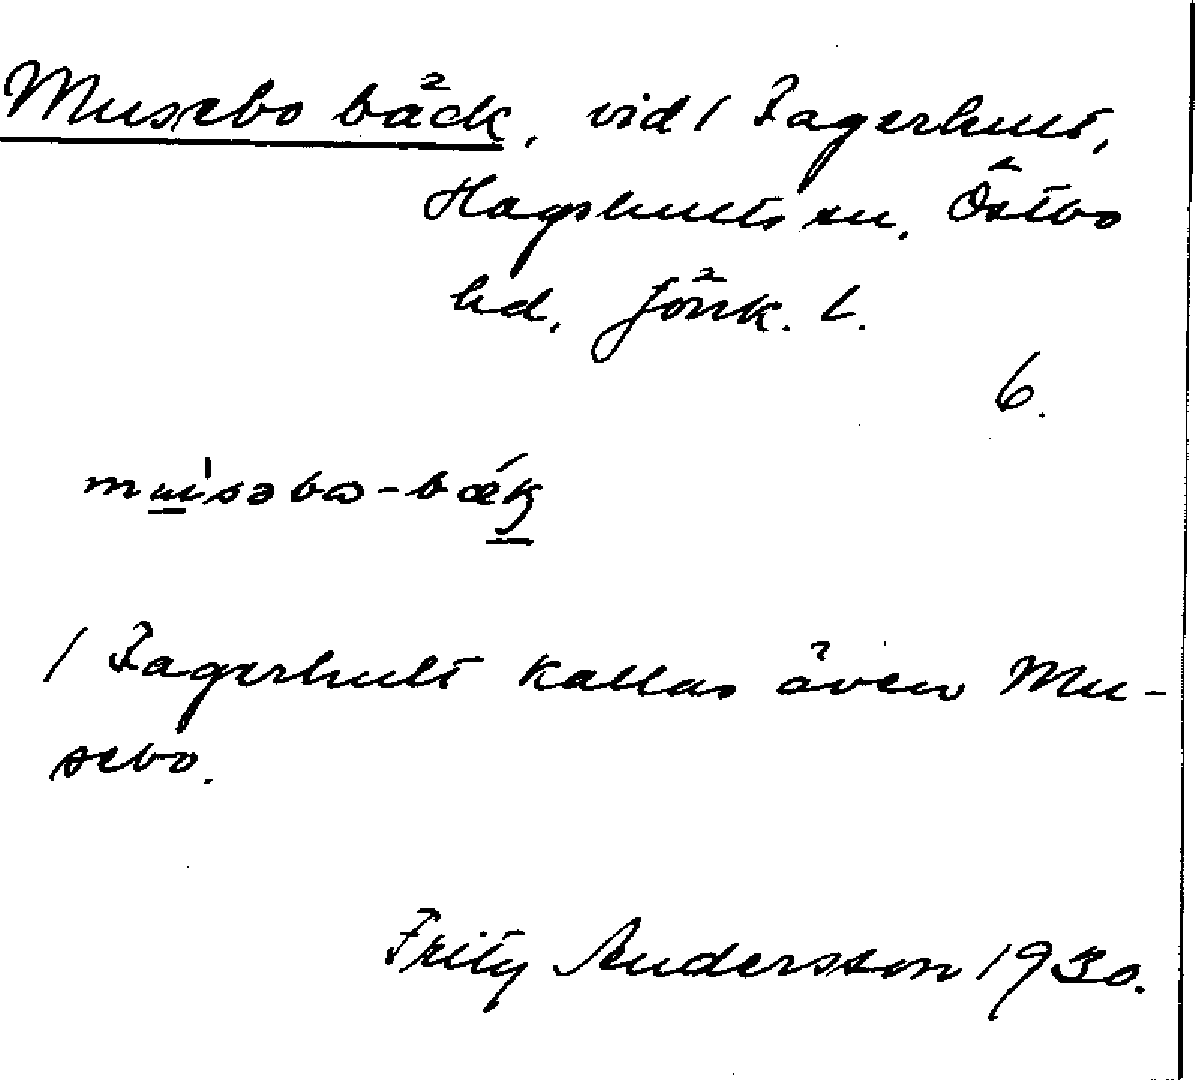 Musebo bäck, vid 1 Fagerhult,
Hagshults sn. Östbo
hd. Jönk. l.
6.
1 Fagerhult kallas även Mu-
sebo.
Fritz Andersson 1930.